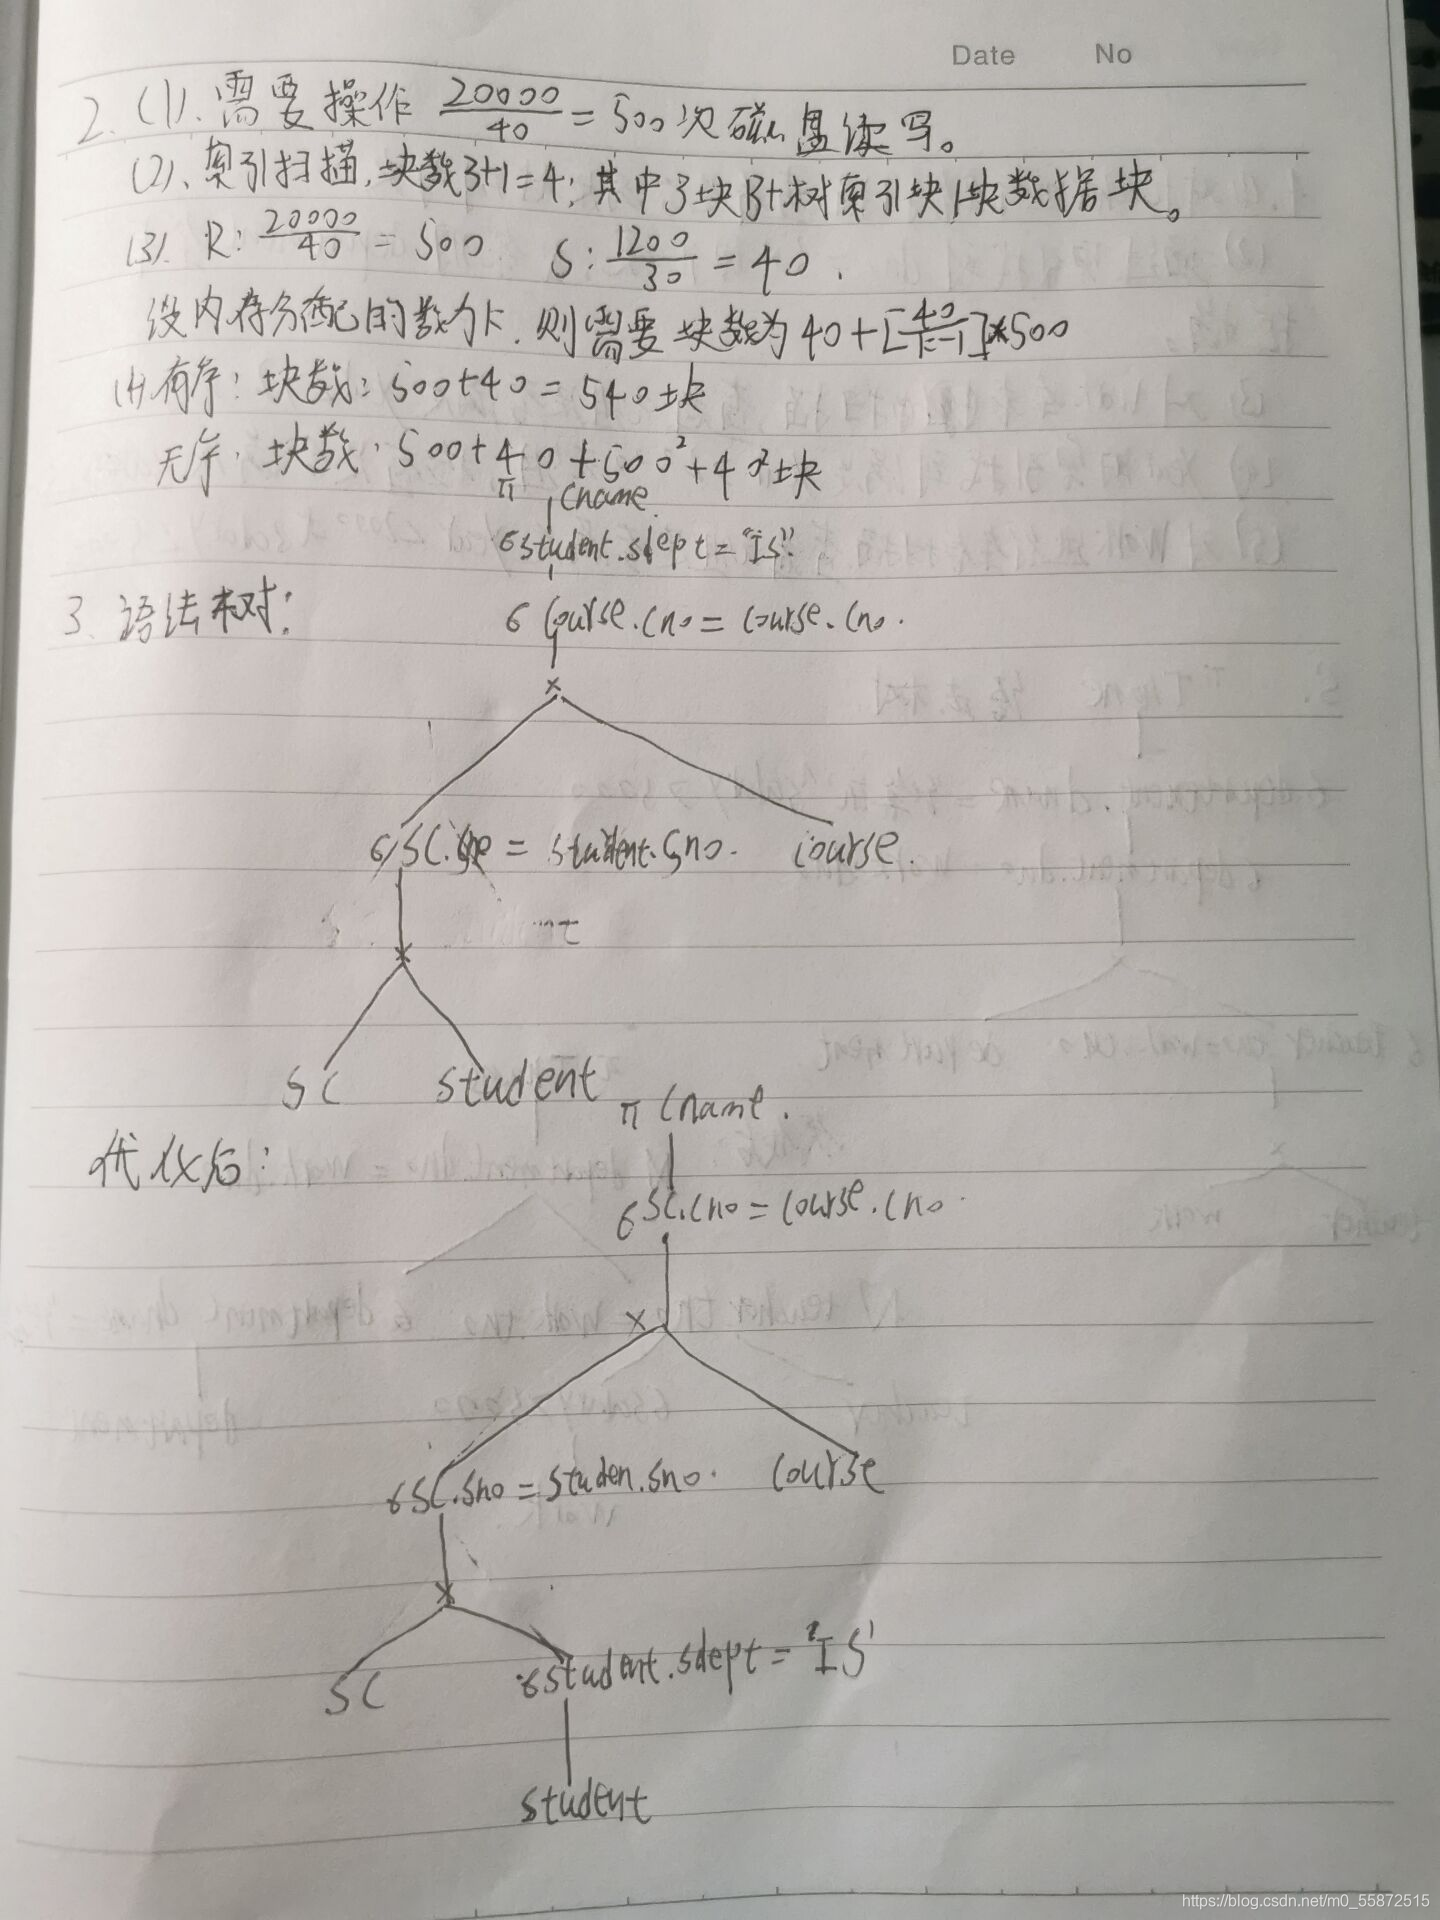 Date No
2. (1)、需要操作 20000/40 = 500次磁盘读写。
(2)、索引扫描,块数3+1=4;其中3块B+树索引块1块数据块。
(3). R: 20000/40 = 500 S: 1200/30 = 40.
设内存分配的数为k,则需要块数为40+[40/k-1]*500
(4)有序:块数:500+40=540块
无序:块数:500+40+500²+40²块
π Cname
σ student.sdept="IS"
3、语法树:
σ Course.Cno = Course.Cno.
×
σ SC. = student.Sno. Course.
×
SC student
π Cname.
优化后:
σ SC.Cno = Course.Cno.
×
σ SC.Sno = studen.Sno. Course
×
SC σ student.sdept = 'IS'
student
https://blog.csdn.net/m0_55872515